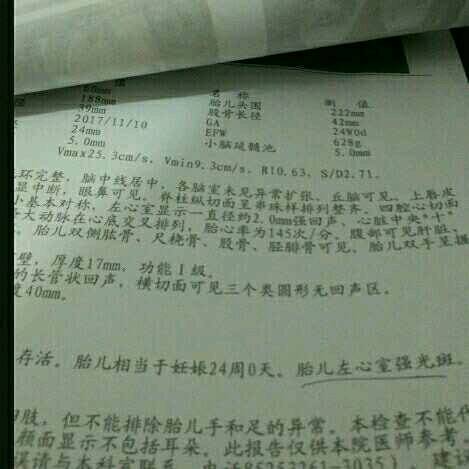 值 名称 测值
60mm 胎儿头围 222mm
188mm 股骨长径 42mm
39mm GA 24W0d
2017/11/10 EFW 628g
24mm 小脑延髓池 5.0mm
5.0mm
Vmax25.3cm/s, Vmin9.3cm/s, RI0.63, S/D2.71.
环完整, 脑中线居中, 各脑室未见异常扩张, 丘脑可见, 上唇皮
显中断, 眼鼻可见, 脊柱纵切面呈串珠样排列整齐, 四腔心切面
小基本对称, 左心室显示一直径约2.0mm强回声, 心脏中央"十"
大动脉在心底交叉排列, 胎心率为145次/分, 腹部可见肝脏,
胎儿双侧肱骨、尺桡骨、股骨、胫腓骨可见, 胎儿双手呈握
壁, 厚度17mm, 功能Ⅰ级。
的长管状回声, 横切面可见三个类圆形无回声区。
度40mm。
存活。胎儿相当于妊娠24周0天。胎儿左心室强光斑。
肢, 但不能排除胎儿手和足的异常。本检查不能
颜面显示不包括耳朵。此报告仅供本院医师参考,
误请与本科室联系